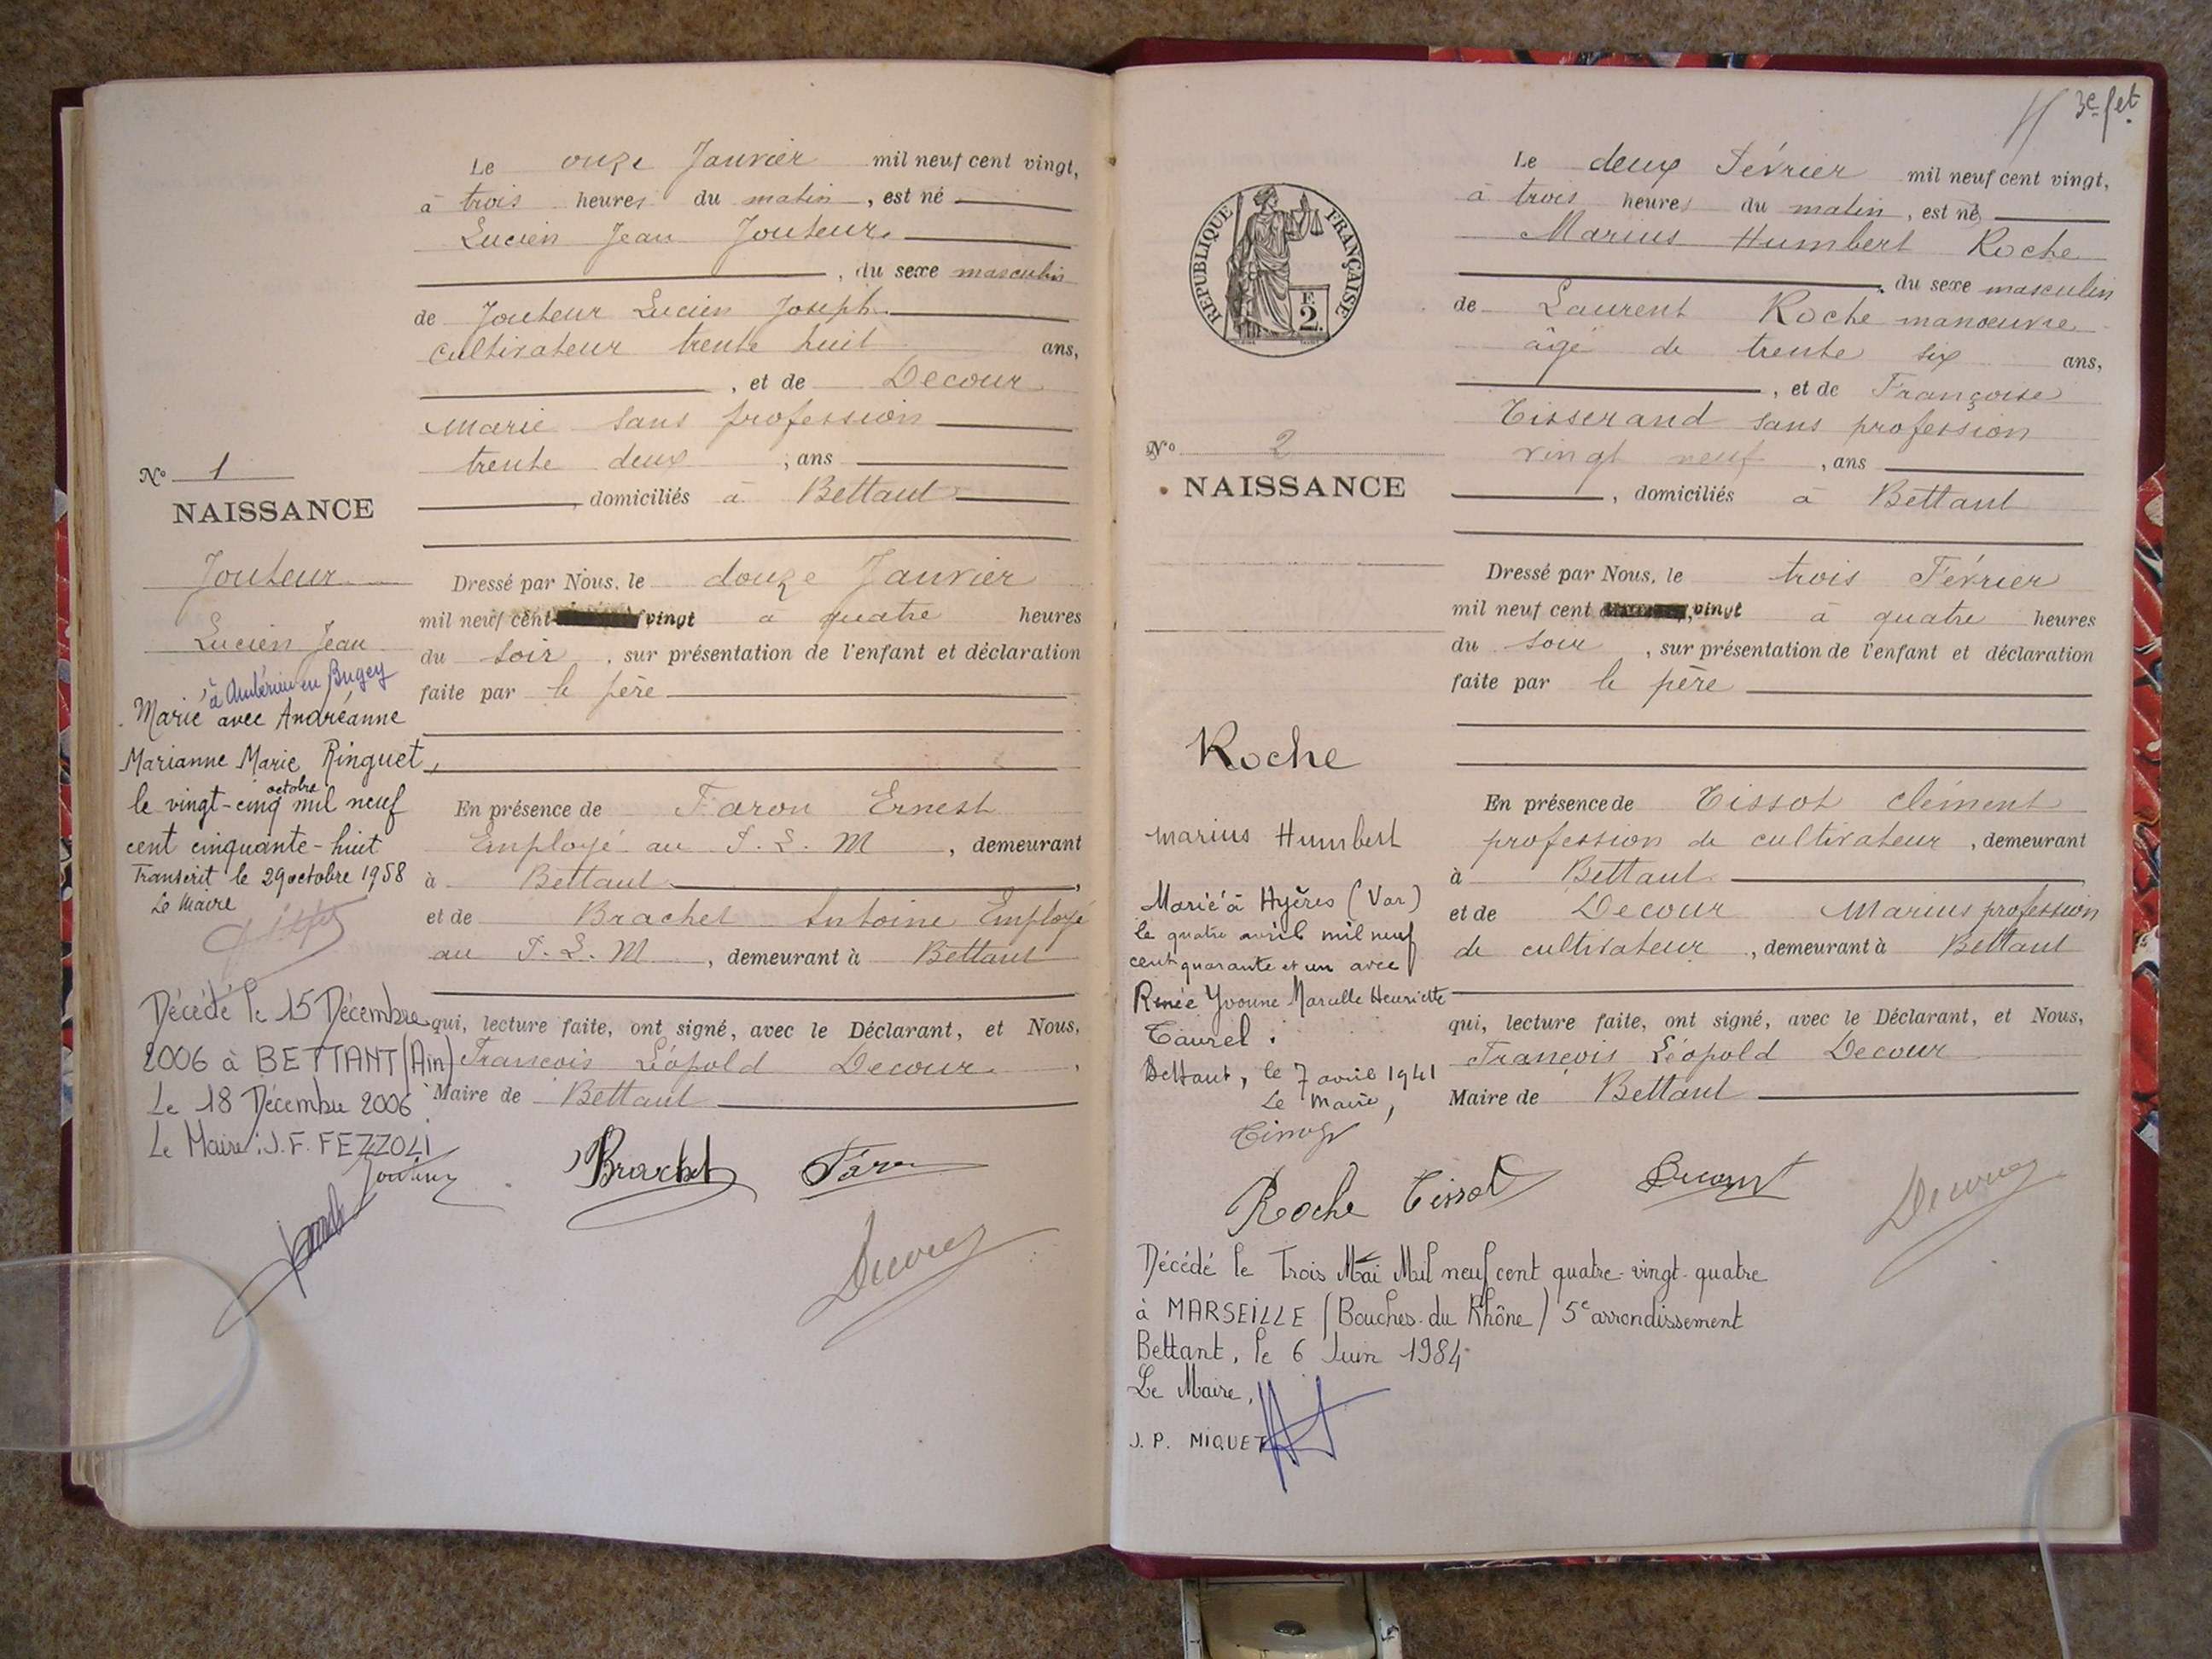 Le onze Janvier mil neuf cent vingt,
à trois heures du matin, est né
Lucien Jean Jouteur.
, du sexe masculin
de Jouteur Lucien Joseph
cultivateur trente huit ans,
, et de Decour
Marie sans profession
trente deux, ans
, domiciliés à Bettant
N° 1
NAISSANCE
Jouteur
Lucien Jean
Dressé par Nous, le douze Janvier
mil neuf cent vingt à quatre heures
du soir, sur présentation de l'enfant et déclaration
faite par le père
à Ambérieu en Bugey
Marié avec Andréanne
Marianne Marie Ringuet,
octobre
le vingt-cinq mil neuf
cent cinquante-huit
Transcrit le 29 octobre 1958
Le Maire
En présence de Faron Ernest
Employé au P. L. M, demeurant
à Bettant,
et de Brachet Antoine Employé
au P. L. M, demeurant à Bettant
qui, lecture faite, ont signé, avec le Déclarant, et Nous,
Francois Léopold Decour,
Maire de Bettant
Décédé le 15 Décembre
2006 à BETTANT (Ain)
Le 18 Décembre 2006
Le Maire: J.F. FEZZOLI
Jouteur Brachet Faron
Decour
3e fet
Le deux Février mil neuf cent vingt,
à trois heures du matin, est né
Marius Humbert Roche
, du sexe masculin
de Laurent Roche manœuvre
âgé de trente six ans,
, et de Françoise
Tisserand sans profession
vingt neuf, ans
, domiciliés à Bettant
RÉPUBLIQUE FRANÇAISE
F.
2.
N° 2
NAISSANCE
Dressé par Nous, le trois Février
mil neuf cent vingt à quatre heures
du soir, sur présentation de l'enfant et déclaration
faite par le père
Roche
Marius Humbert
Marié à Hyères (Var)
le quatre avril mil neuf
cent quarante et un avec
Renée Yvonne Marcelle Henriette
Taurel.
Bettant, le 7 avril 1941
Le Maire,
Tissot
En présence de Tissot clément
profession de cultivateur, demeurant
à Bettant
et de Decour Marius profession
de cultivateur, demeurant à Bettant
qui, lecture faite, ont signé, avec le Déclarant, et Nous,
François Léopold Decour
Maire de Bettant
Roche Tissot Decour Decour
Décédé le Trois Mai Mil neuf cent quatre-vingt-quatre
à MARSEILLE (Bouches-du Rhône) 5e arrondissement
Bettant, le 6 Juin 1984
Le Maire,
J. P. MIQUET